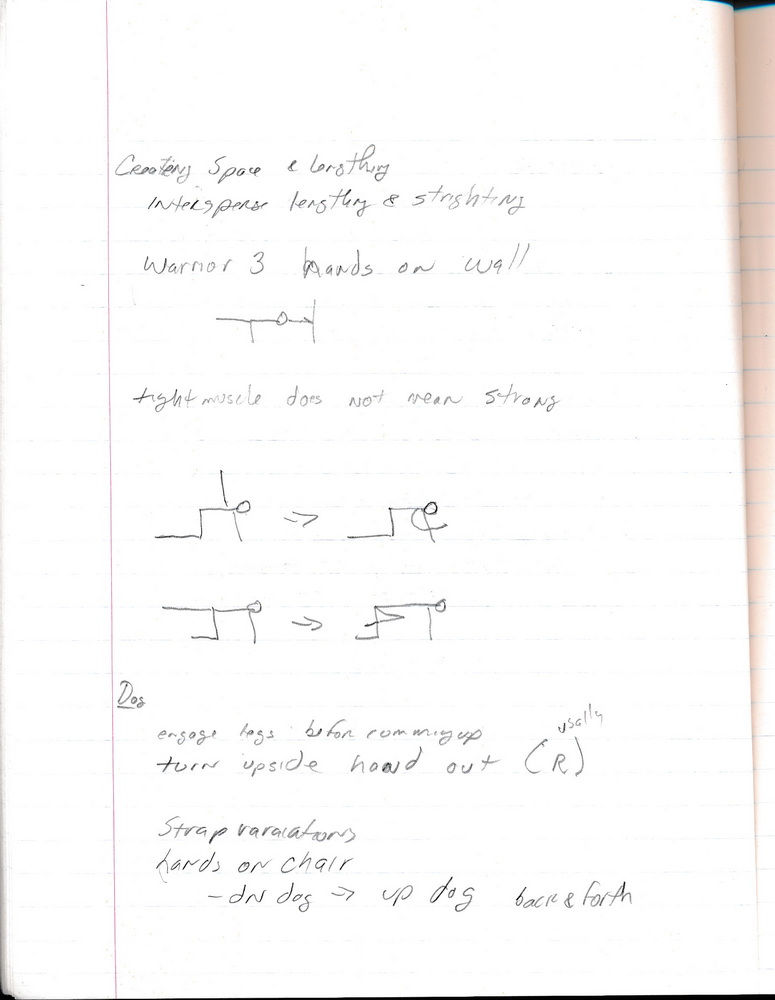 Creating Space & lengthing
Intersperse lengthing & strighting
Warrior 3 hands on wall
tight muscle does not mean strong
Dog
engage legs before comming up
turn upside hand out (R) usally
Strap varaiations
hands on chair
- dn dog => up dog back & forth